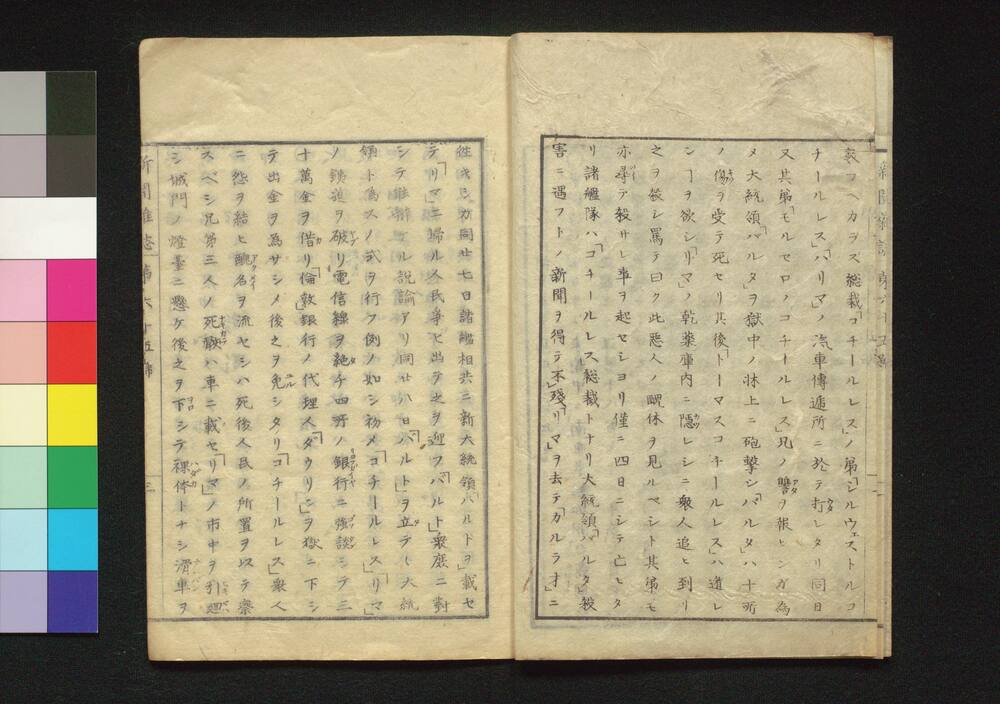 哀コヘカラス総裁「コチールレス」ノ弟「シルウェストルコ
チールレス」「バリマ」ノ汽車傳逓所ニ於テ打レタリ同日
又其弟「モルセロノコチールレス」兄ノ讐ヲ報ヒンガ為
メ大統領「バルタ」ヲ獄中ノ牀上ニ砲撃シ「バルタ」ハ十所
ノ傷ヲ受テ死セリ其後「トーマスコチールレス」ハ遁レ
ンヿヲ欲シ「リマ」ノ乾薬庫内ニ隠レシニ衆人追ヒ到リ
之ヲ殺シ罵テ曰ク此悪人ノ醜体ヲ見ルベシト其弟モ
亦尋テ殺サレ事ヲ起セシヨリ僅ニ四日ニシテ亡ヒタ
リ諸艦隊ハ「コチールレス」総裁トナリ大統領「バルタ」殺
害ニ遇フトノ新聞ヲ得テ不残「リマ」ヲ去テ「カルラオ」ニ
往キシカ同廿七日諸艦相共ニ新大統領「バルトヲ」載セ
テ「リマ」ニ歸ル人民争ヒ出テ之ヲ迎フ「バルト」衆庶ニ對
シテ雄辯ナル説諭アリ同廿八日「バルト」ヲ立テヽ大統
領ト為スノ式ヲ行フ例ノ如シ初メ「コチールレス」「リマ」
ノ鉄道ヲ破リ電信線ヲ絶チ四所ノ銀行ニ強談シテ三
十萬金ヲ借リ「倫敦」銀行ノ代理人「ダウリン」ヲ獄ニ下シ
テ出金ヲ為サシメ後之ヲ免シタリ「コチールレス」衆人
ニ怨ヲ結ヒ醜名ヲ流セシハ死後人民ノ所置ヲ以テ察
スベシ兄弟三人ノ死骸ハ車ニ載セ「リマ」ノ市中ヲ引廻
シ城門ノ燈臺ニ懸ケ後之ヲ下シテ裸体トナシ滑車ヲ
新聞雑誌 第六十五号 三